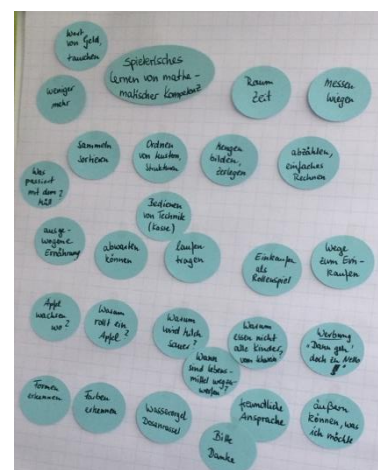 Wert
von Geld,
tauschen
spielerisches
lernen von mathe-
matischer Kompetenz
Raum
Zeit
Messen
Wiegen
weniger
mehr
Sammeln
Sortieren
Ordnen
von
Strukturen
Mengen
bilden,
zerlegen
abzählen,
einfaches
Rechnen
Was
passiert
mit dem
Müll
?
Bedienen
von Technik
(Kasse)
ausge-
wogene
Ernährung
abwarten
können
laufen
tragen
Einkaufen
als
Rollenspiel
Wege
zum Ein-
kaufen
Äpfel
wachsen
wo?
Warum
rollt ein
Apfel?
Warum
wird Milch
sauer?
Warum
essen nicht
alle Kinder
vom
Werbung
"Dann geh'
doch zu Netto
!!"
Wann
sind Lebens-
mittel wegzu-
werfen?
Formen
erkennen
Farben
erkennen
Wasserorgel
Dosenrassel
freundliche
Ansprache
äußern
können, was
ich möchte
Bitte
Danke